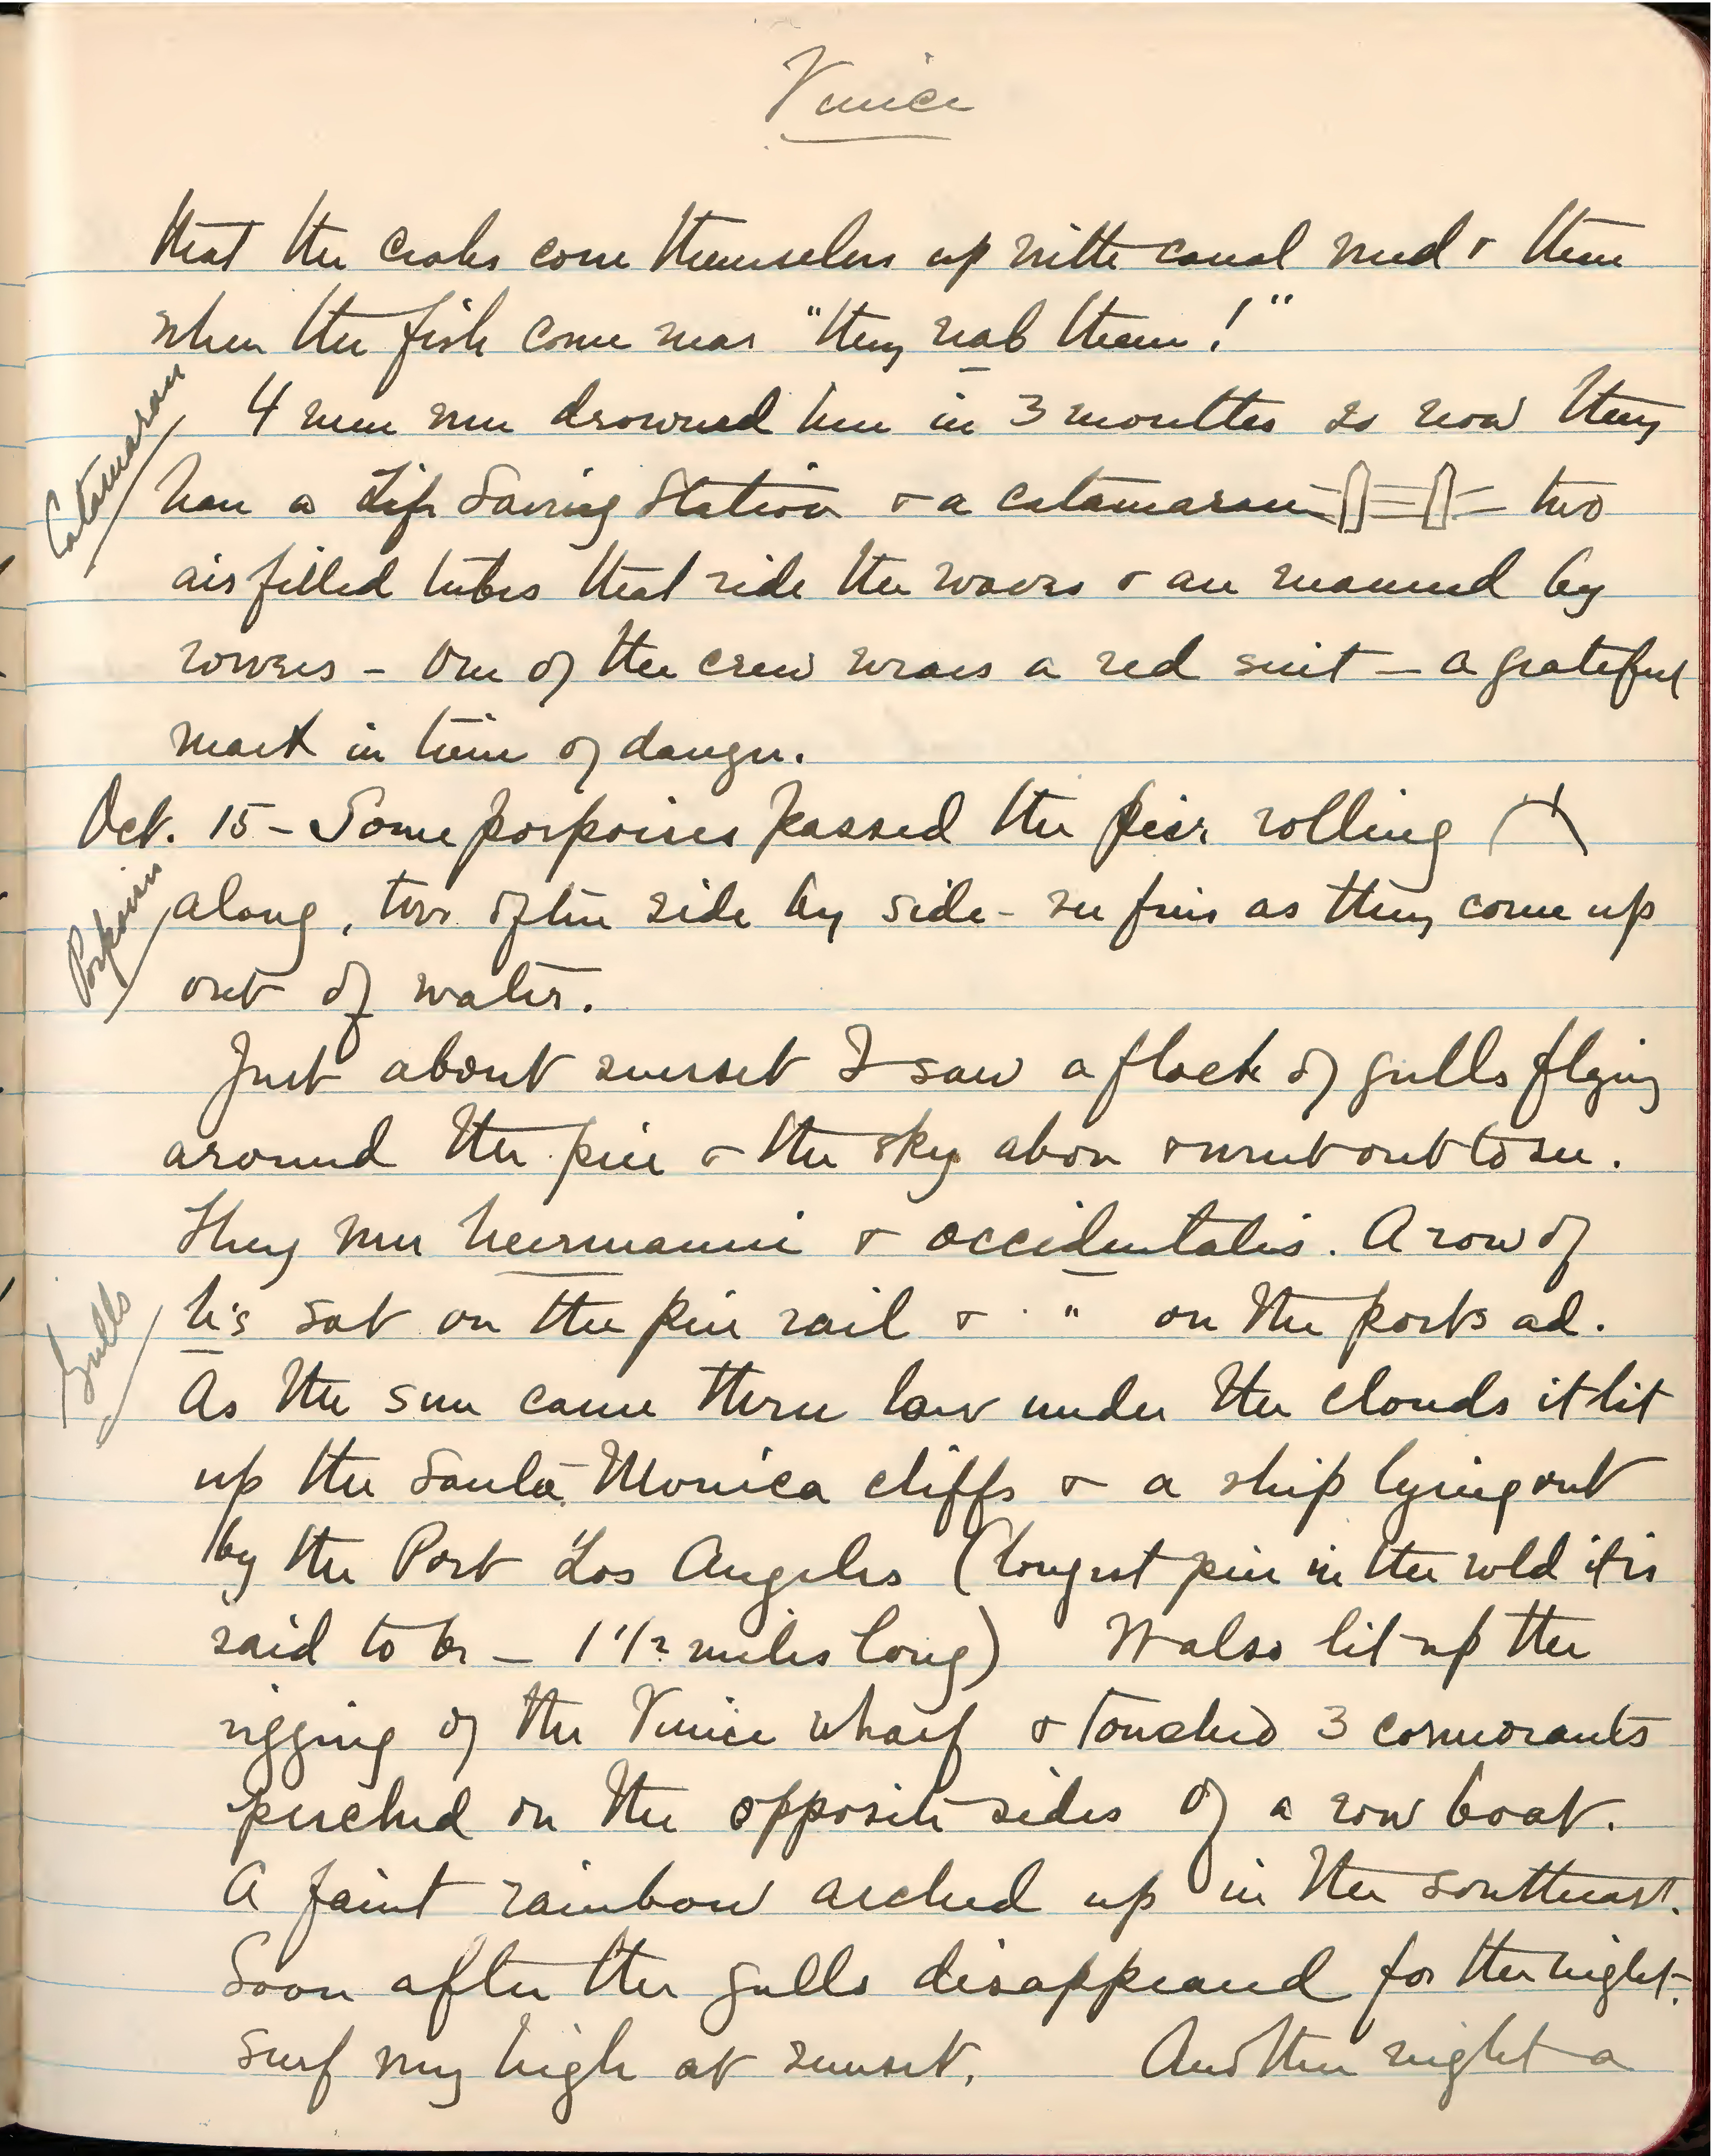 Venice
that the crabs cover themselves up with canal mud & then
when the fish come near "they nab them!"
Catamaran
4 men were drowned here in 3 months so now they
have a Life Saving Station & a catamaran two
air filled tubes that ride the waves & are manned by
rowers - One of the crew wears a red suit - a grateful
mark in time of danger.
Oct. 15 - Some porpoises passed the pier rolling
Porpoises
along, two often side by side - see fins as they come up
out of water.
Just about sunset I saw a flock of gulls flying
around the pier & the sky above & went out to see.
They were heermanni & occidentalis. A row of
Gulls
h's sat on the pier rail & " on the posts ad.
As the sun came thru low under the clouds it lit
up the Santa Monica cliffs & a ship lying out
by the Port Los Angeles (longest pier in the wold it is
said to be - 1 1/2 miles long) It also lit up the
rigging of the Venice wharf & touched 3 cormorants
perched on the opposite sides of a row boat.
A faint rainbow arched up in the southeast.
Soon after the gulls disappeared for the night.
Surf very high at sunset. Another night a